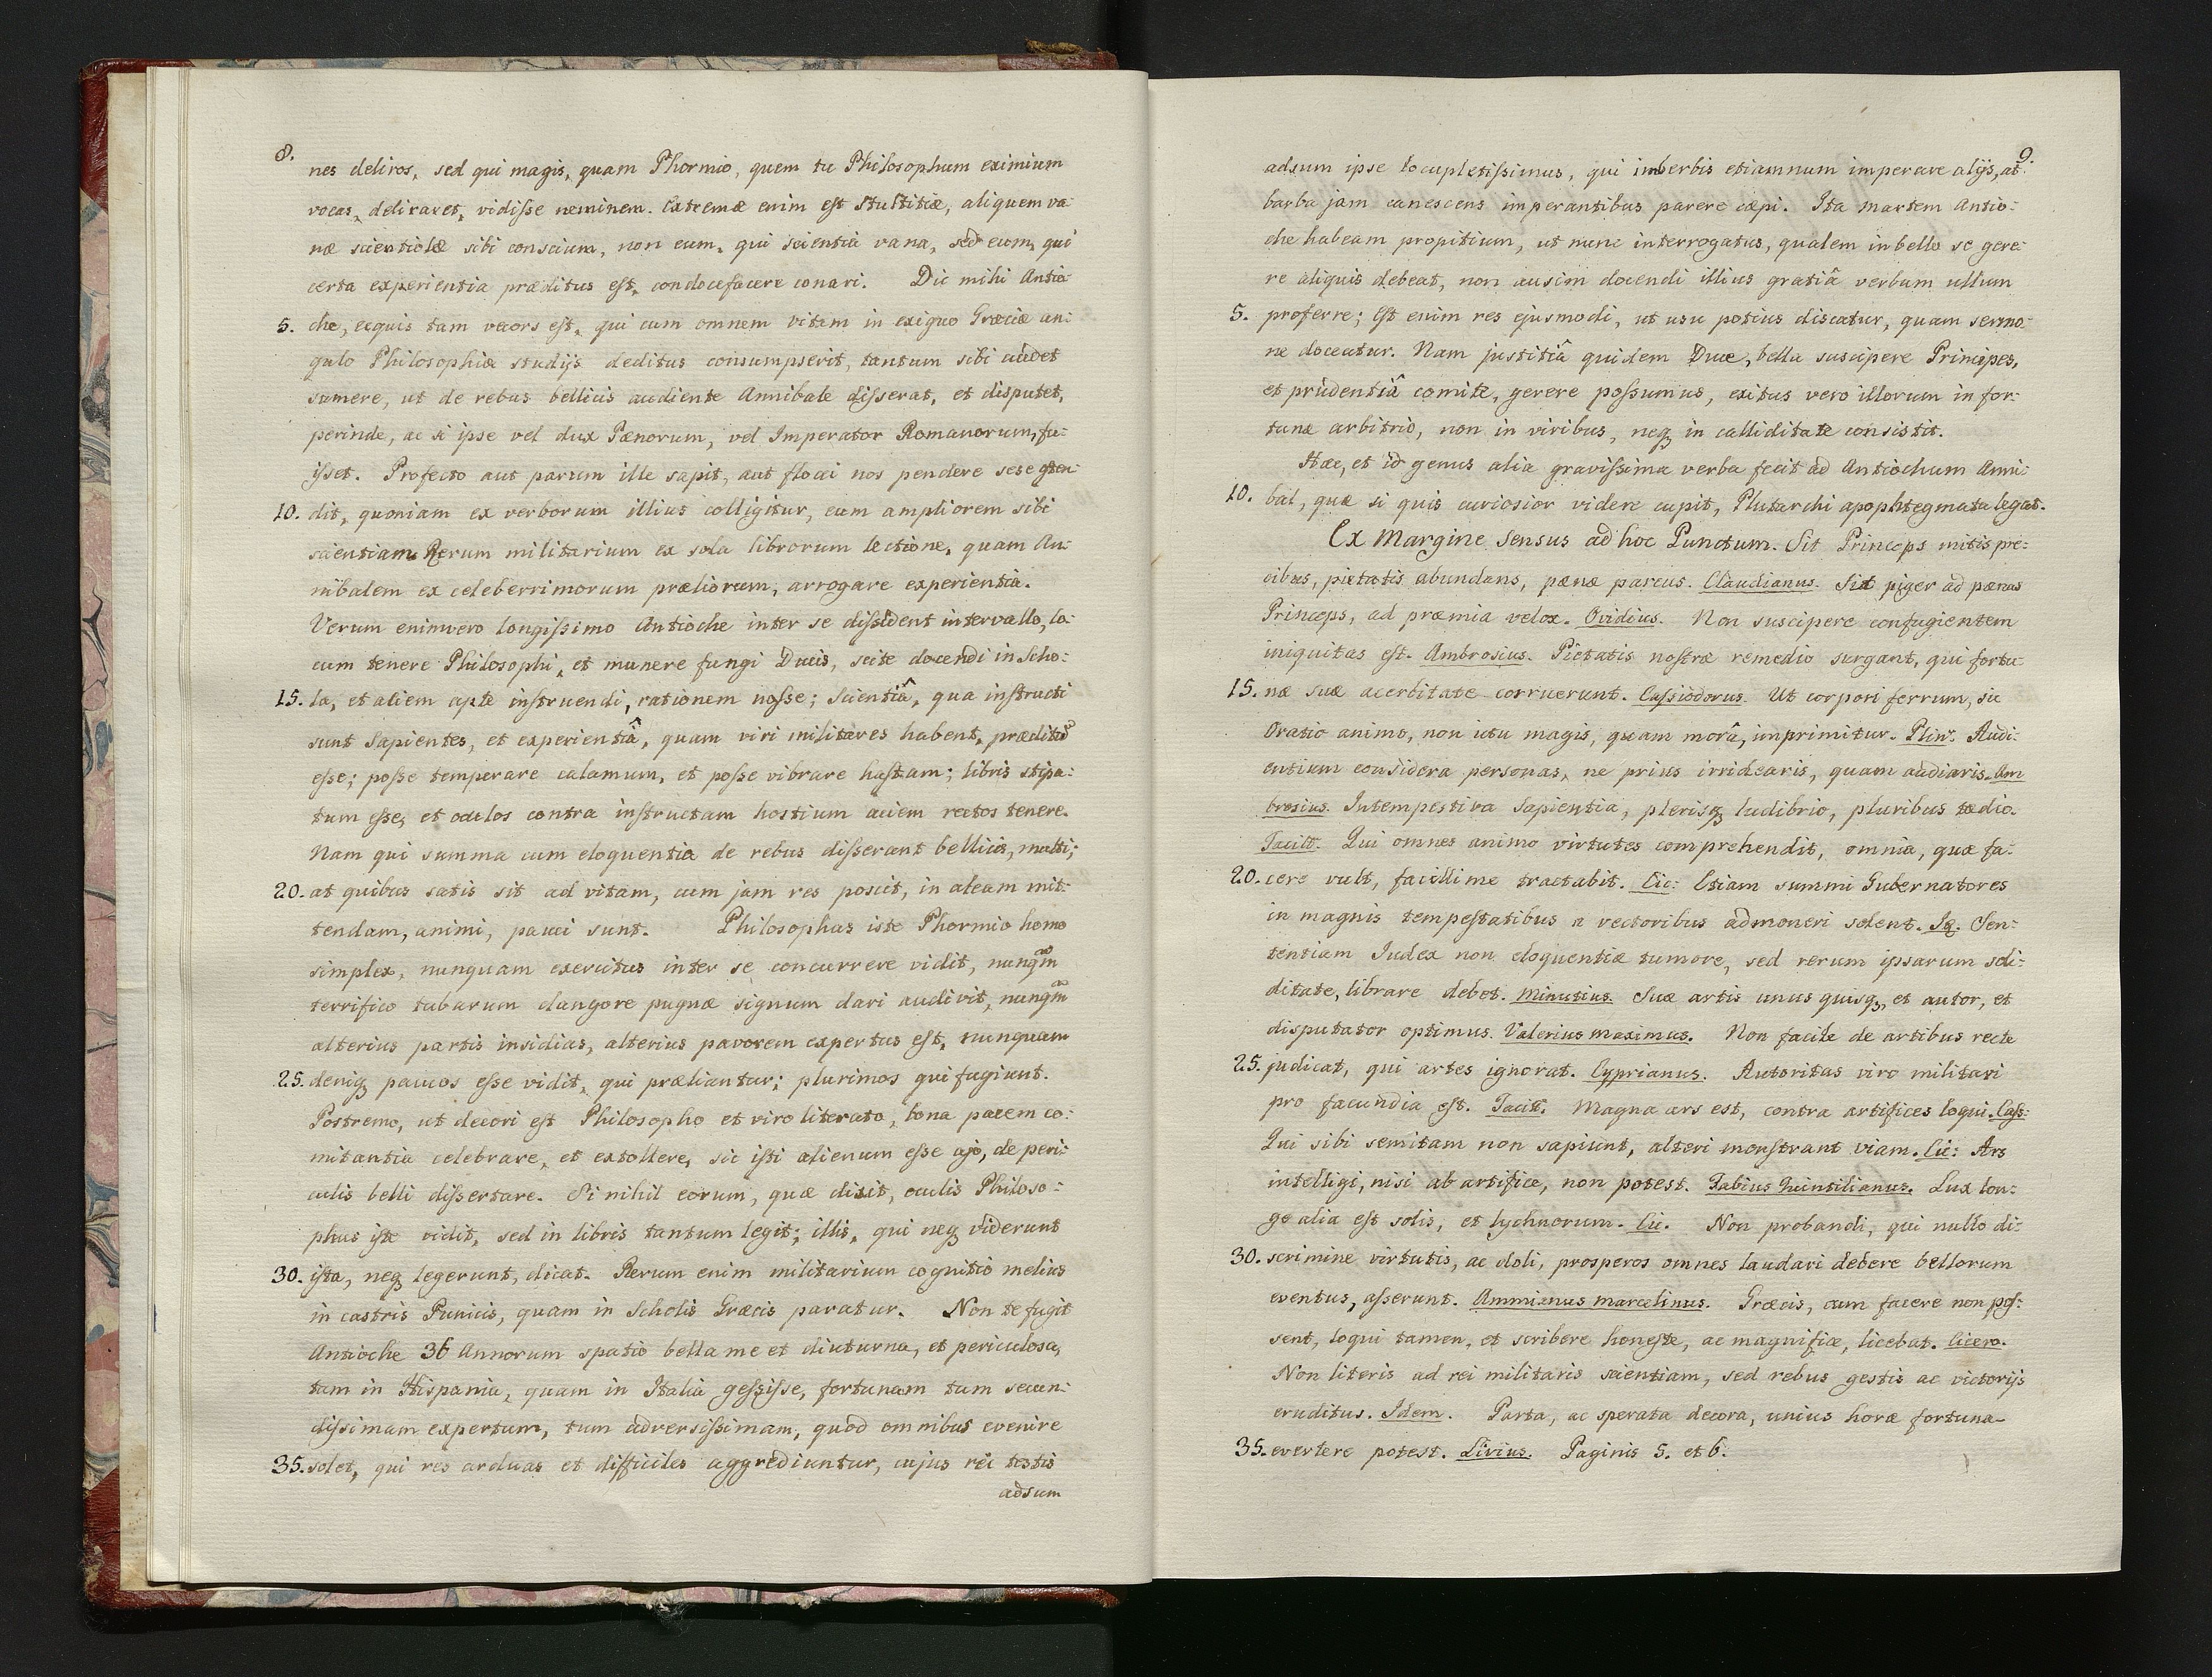 8.
nes deliros, sed qui magis, quam Phormio, quem tu Philosophum eximium
vocas, deliraret, vidisse neminem. Extremæ enim est stultitiæ, aliquem va-
næ scientiolæ sibi conscium, non eum, qui scientiâ vana, sed eum, qui
certa experientia præditus est, condocefacere conari. Dic mihi Antio-
5. che, ecquis tam vecors est, qui cum omnem vitam in exiguo Græciæ an:
gulo Philosophiæ studijs deditus consumpserit, tantum sibi audet
sumere, ut de rebus bellicis audiente Annibale disserat, et disputet,
perinde, ac si ipse vel dux Pænorum, vel Imperator Romanorum, fu-
isset. Profecto aut parum ille sapit, aut flocci nos pendere sese osten-
10. dit, quoniam ex verborum illius colligitur, eum ampliorem sibi
scientiam Rerum militarium ex sola librorum lectione, quam An-
nibalem ex celeberrimorum præliorum, arrogare experientia.
Verum enimvero longissimo Antioche inter se dissident intervallo, lo-
cum tenere Philosophi, et munere fungi Ducis, scite docendi in Scho:
15. la, et aciem apte instruendi, rationem nosse; scientiâ, qua instructi
sunt Sapientes, et experientiâ, quam viri militares habent, præditũ
esse; posse temperare calamum, et posse vibrare hastam; libris stipa:
tum esse, et oculos contra instructam hostium aciem rectos tenere.
Nam qui summa cum eloquentia de rebus disserant bellicis, multi;
20. at quibus satis sit ad vitam, cum jam res poscit, in aleam mit:
tendam, animi, pauci sunt. Philosophus iste Phormio homo
simplex, nunquam exercitus inter se concurrere vidit, nunqm̃
terrifico tubarum clangore pugnæ signum dari audivit, nunqm̃
alterius partis insidias, alterius pavorem expertus est, nunquam
25. deniq3 paucos esse vidit, qui præliantur; plurimos qui fugiunt.
Postremo, ut decori est Philosopho et viro literato, bona pacem co:
mitantia celebrare, et extollere, sic isti alienum esse ajo, de peri:
culis belli dissertare. Si nihil eorum, quæ dixit, oculis Philoso:
phus iste vidit, sed in libris tantum legit; illis, qui neq3 viderunt
30. ista, neq3 legerunt, dicat. Rerum enim militarium cognitio melius
in castris Punicis, quam in Scholis Græcis paratur. Non te fugit
Antioche 36 Annorum spatio bella me et diuturna, et periculosa,
tam in Hispania, quam in Italia gessisse, fortunam tum secun:
dissimam expertum, tum adversissimam, quod omnibus evenire
35. solet, qui res arduas et difficiles aggrediuntur, cujus rei testis
adsum
9.
adsum ipse locupletissimus, qui imberbis etiamnum imperare alijs, at
barba jam canescens imperantibus parere cæpi. Ita Martem Antio:
che habeam propitium, ut nunc interrogatus, qualem in bello se gere:
re aliquis debeat, non ausim docendi illius gratiâ verbum ullum
5. proferre; Est enim res ejusmodi, ut usu potius discatur, quam sermo:
ne doceatur. Nam justitiâ quidem Duce, bella suscipere Principes,
et prudentiâ comite, gerere possumus, exitus vero illorum in for:
tunæ arbitrio, non in viribus, neq3 in calliditate consistit.
Hæc, et id genus alia gravissima verba fecit ad Antiochum Anni:
10. bal, quæ si quis curiosior videre cupit, Plutarchi apophtegmata legat.
Ex Margine Sensus ad hoc Punctum. Sit Princeps mitis pre:
cibus, pietatis abundans, pænæ parcus. Claudianus. Sit piger ad pænas
Princeps, ad præmia velox. Ovidius. Non suscipere confugientem
iniquitas est. Ambrosius. Pietatis nostræ remedio surgant, qui fortu-
15. næ suæ acerbitate corruerunt. Cassiodorus. Ut corpori ferrum, sic
Oratio animo, non ictu magis, quam morâ, imprimitur. Plin. Audi:
entium considera personas, ne prius irridearis, quam audiaris. Am
brosius. Intempestiva Sapientia, plerisq3 ludibrio, pluribus tædio.
Tacit. Qui omnes animo virtutes comprehendit, omnia, quæ fa:
20. cere vult, facillime tractabit. Cic: Etiam summi Gubernatores
in magnis tempestatibus a vectoribus admoneri solent. Iq. Sen:
tentiam Iudex non eloquentiæ tumore, sed rerum ipsarum soli:
ditate, librare debet. Minutius. Suæ artis unus quisq3, et autor, et
disputator optimus. Valerius Maximus. Non facile de artibus recte
25. judicat, qui artes ignorat. Cyprianus. Autoritas viro militari
pro facundia est. Tacit. Magna ars est, contra artifices loqui. Cass:
Qui sibi semitam non sapiunt, alteri monstrant viam. Cic: Ars
intelligi, nisi ab artifice, non potest. Fabius Quintilianus. Lux lon:
ge alia est solis, et lychnorum. Cic. Non probandi, qui nullo di:
30. scrimine virtutis, ac doli, prosperos omnes laudari debere bellorum
eventus, asserunt. Ammianus Marcelinus. Græcis, cum facere non pos:
sent, loqui tamen, et scribere honeste, ac magnifice, licebat. Cicero.
Non literis ad rei militaris scientiam, sed rebus gestis ac victorijs
eruditus. Idem. Parta, ac sperata decora, unius horæ fortuna
35. evertere potest. Livius. Paginis 5. et 6.